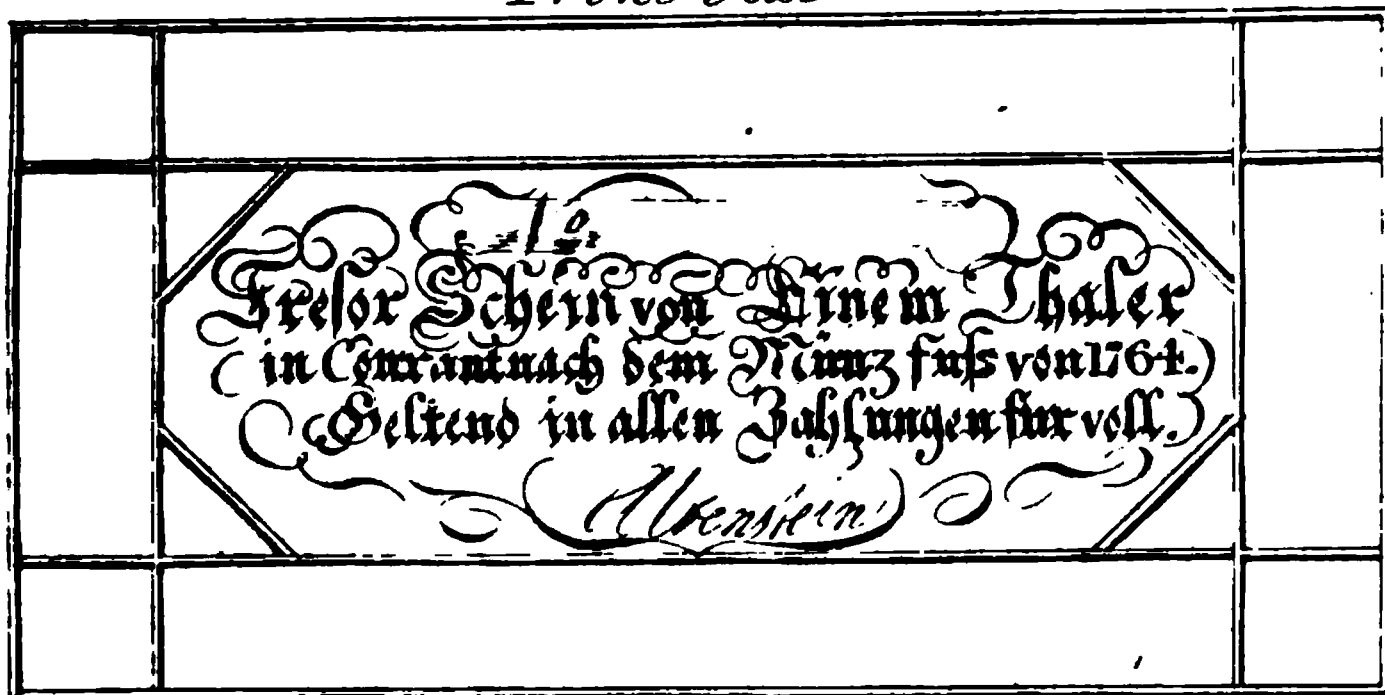 Tresor Schein von Einem Thaler
in Courant nach dem Münz fuſs von 1764.
Geltend in allen Zahlungen fur voll.
Altenstein